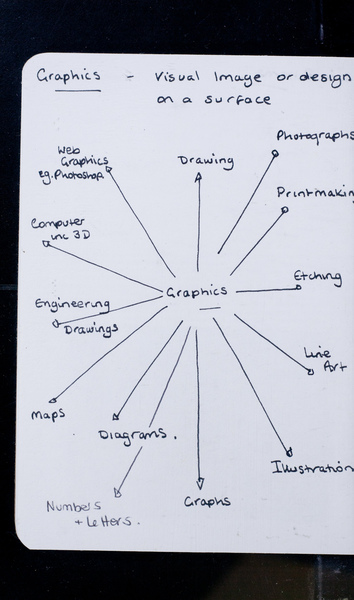 Graphics - Visual Image or design
on a surface
Photographs
Web
Graphics
eg. Photoshop
Drawing
Printmaking
Computer
inc 3D
Etching
Graphics
Engineering
Drawings
Line
Art
Maps
Diagrams.
Illustration
Numbers
+ Letters.
Graphs